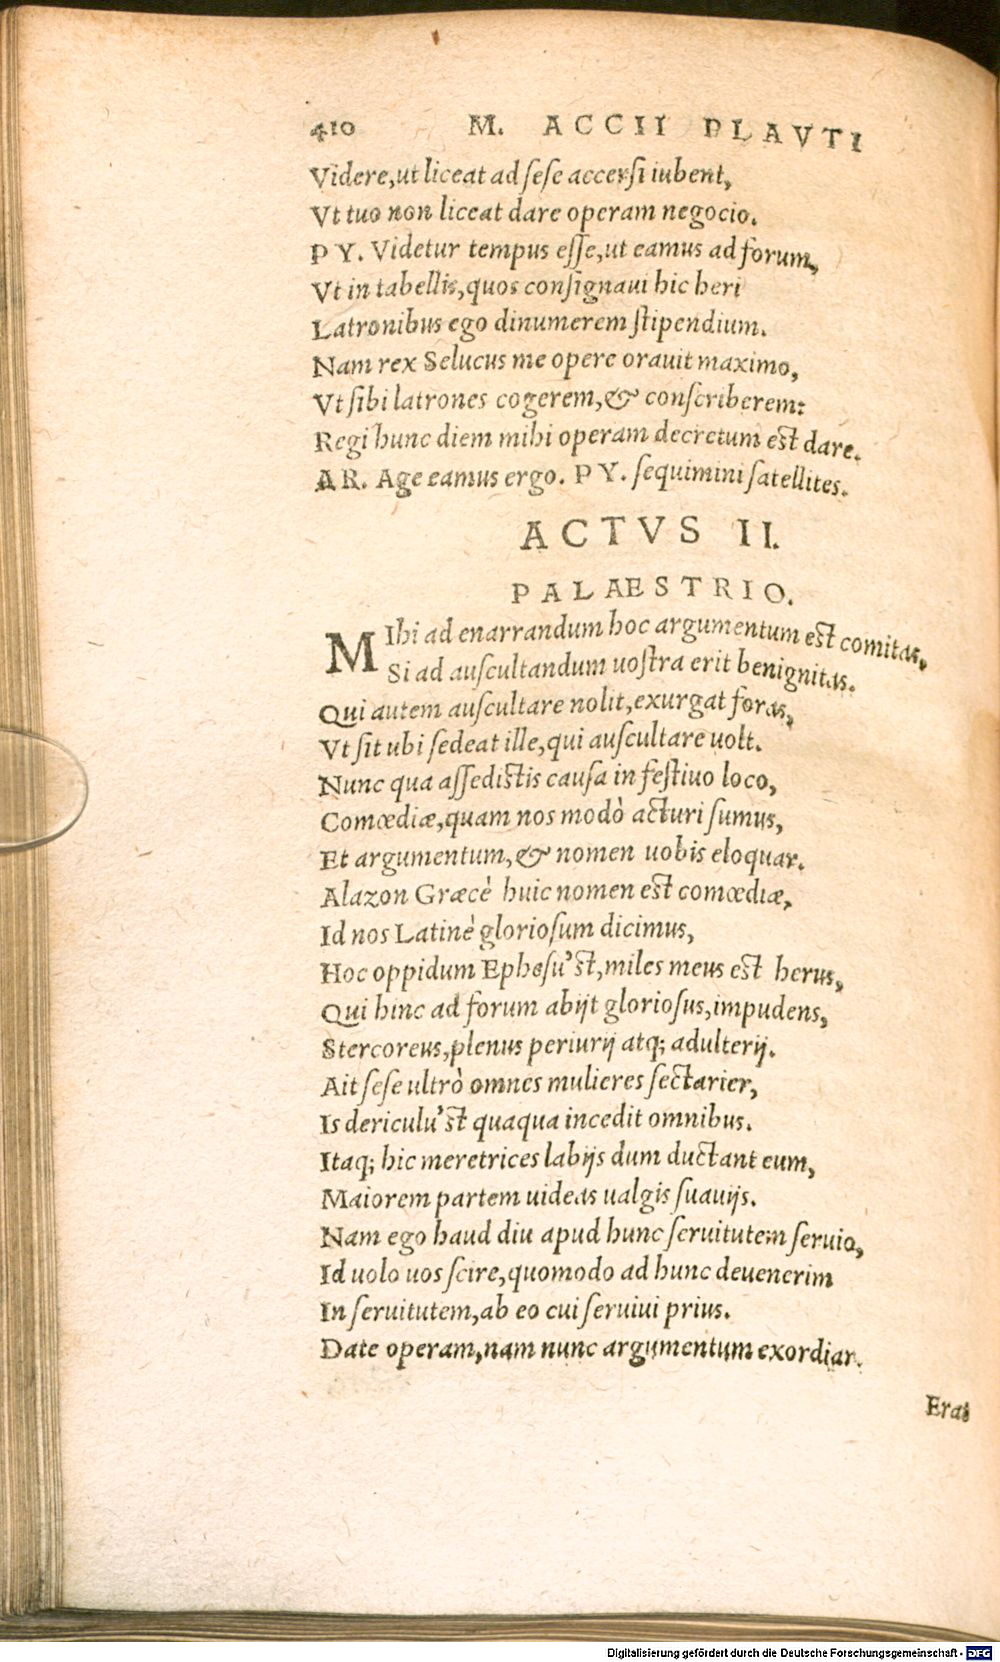 410 M. ACCII PLAVTI
Videre,ut liceat ad sese accersi iubent,
Vt tuo non liceat dare operam negocio.
PY. Videtur tempus esse,ut eamus ad forum,
Vt in tabellis,quos consignaui hic heri
Latronibus ego dinumerem stipendium.
Nam rex Selucus me opere orauit maximo,
Vt sibi latrones cogerem,& conscriberem:
Regi hunc diem mihi operam decretum est dare.
AR. Age eamus ergo. PY. sequimini satellites.
ACTVS II.
PALAESTRIO.
MIhi ad enarrandum hoc argumentum est comitas,
Si ad auscultandum uostra erit benignitas.
Qui autem auscultare nolit,exurgat foras,
Vt sit ubi sedeat ille,qui auscultare uolt.
Nunc qua assedistis causa in festiuo loco,
Comœdiæ,quam nos modò acturi sumus,
Et argumentum,& nomen uobis eloquar.
Alazon Græcè huic nomen est comœdiæ,
Id nos Latinè gloriosum dicimus,
Hoc oppidum Ephesu'st,miles meus est herus,
Qui hinc ad forum abijt gloriosus,impudens,
Stercoreus,plenus periurij atq; adulterij.
Ait sese ultrò omnes mulieres sectarier,
Is dericulu'st quaqua incedit omnibus.
Itaq; hic meretrices labijs dum ductant eum,
Maiorem partem uideas ualgis suauijs.
Nam ego haud diu apud hunc seruitutem seruio,
Id uolo uos scire,quomodo ad hunc deuenerim
In seruitutem,ab eo cui seruiui prius.
Date operam,nam nunc argumentum exordiar.
Erat
Digitalisierung gefördert durch die Deutsche Forschungsgemeinschaft - DFG